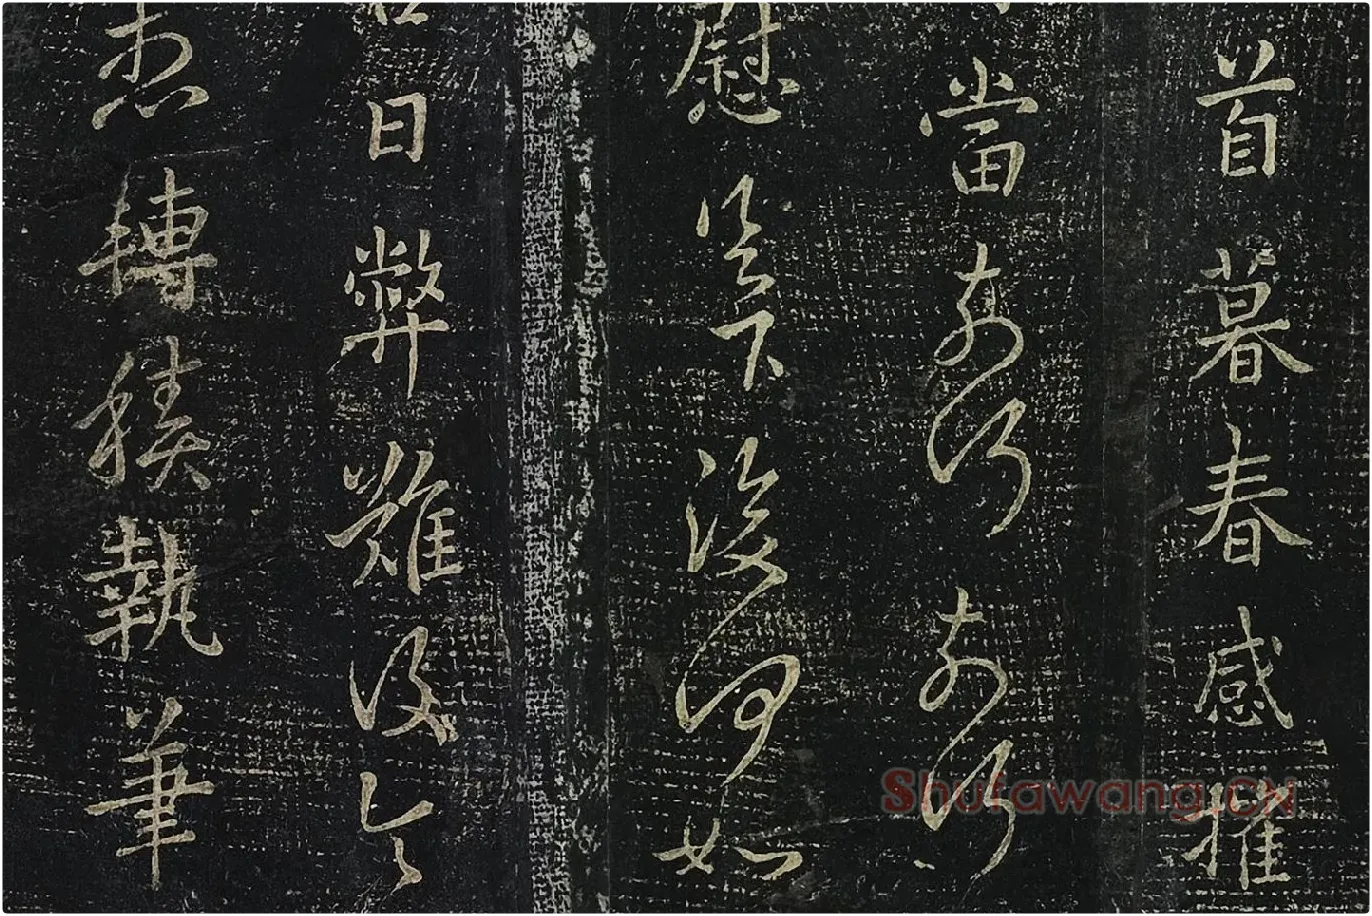 首暮春感摧
當奈何奈何
慰足下後何如
日弊難復令
轉積執筆
Shufawang.CN